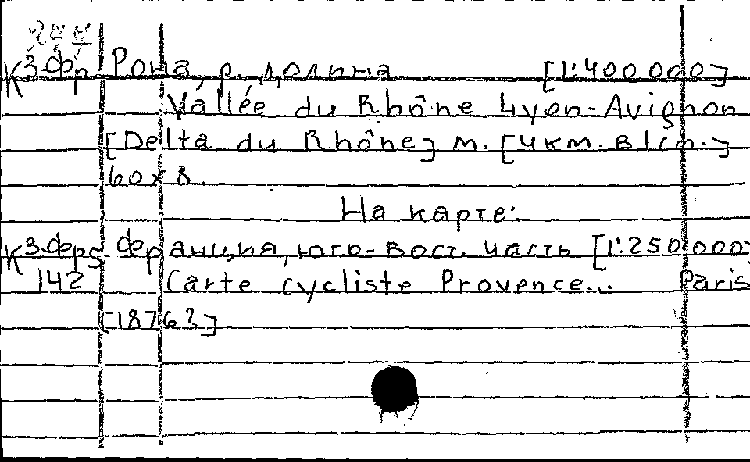 К 3-Фр Рона, р. долина [1:400 000]
Vallée du Rhône Lyon-Avignon
[Delta du Rhône] м. [4км. в 1см.]
60x8.
На карте:
К 3-Фр 5 Франция, юго-вост. часть [1:250 000]
142 Carte cycliste Provence... Paris
[1876?]